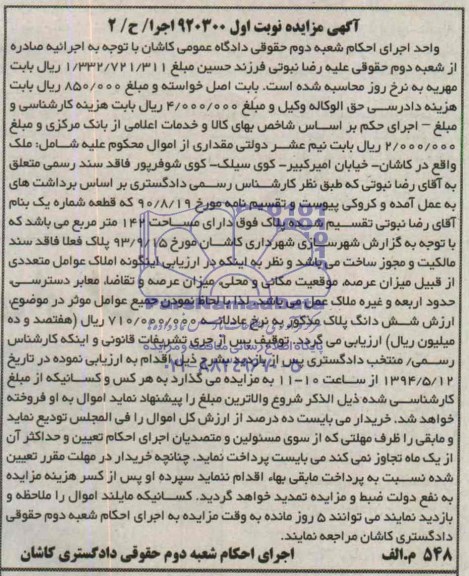 آگهی مزایده نوبت اول ۹۲۰۳۰۰ اجرا/ ح/ ۲
واحد اجرای احکام شعبه دوم حقوقی دادگاه عمومی کاشان با توجه به اجرائیه صادره
از شعبه دوم حقوقی علیه رضا نبوتی فرزند حسین مبلغ ۱/۳۳۲/۷۲۱/۳۱۱ ریال بابت
مهریه به نرخ روز محاسبه شده است. بابت اصل خواسته و مبلغ ۸۵۰/۰۰۰ ریال بابت
هزینه دادرسی حق الوکاله وکیل و مبلغ ۴/۰۰۰/۰۰۰ ریال بابت هزینه کارشناسی و
مبلغ – اجرای حکم بر اساس شاخص بهای کالا و خدمات اعلامی از بانک مرکزی و مبلغ
۲/۰۰۰/۰۰۰ ریال بابت نیم عشر دولتی مقداری از اموال محکوم علیه شامل: ملک
واقع در کاشان- خیابان امیرکبیر- کوی سیلک- کوی شوفرپور فاقد سند رسمی متعلق
به آقای رضا نبوتی که طبق نظر کارشناس رسمی دادگستری بر اساس برداشت های
به عمل آمده و کروکی پیوست و تقسیم نامه مورخ ۹۰/۸/۱۹ که قطعه شماره یک بنام
آقای رضا نبوتی تقسیم شده پلاک فوق دارای مساحت ۱۴۲ متر مربع می باشد که
با توجه به گزارش شهرسازی شهرداری کاشان مورخ ۹۳/۹/۱۵ پلاک فعلا فاقد سند
مالکیت و مجوز ساخت می باشد و نظر به اینکه در ارزیابی اینگونه املاک عوامل متعددی
از قبیل میزان عرصه، موقعیت مکانی و محلی، میزان عرصه و تقاضا، معابر دسترسی،
حدود اربعه و غیره ملاک عمل می باشد. لذا با لحاظ نمودن جمیع عوامل موثر در موضوع،
ارزش شش دانگ پلاک مذکور به نرخ عادلانه ۷۱۰/۰۰۰/۰۰۰ ریال (هفتصد و ده
میلیون ریال) ارزیابی می گردد. توقیف پس از جری تشریفات قانونی و اینکه کارشناس
رسمی/ منتخب دادگستری پس از بازدید بشرح ذیل اقدام به ارزیابی نموده در تاریخ
۱۳۹۴/۵/۱۲ از ساعت ۱۰-۱۱ به مزایده می گذارد به هر کس و کسانیکه از مبلغ
کارشناسی شده ذیل الذکر شروع والاترین مبلغ را پیشنهاد نماید اموال به او فروخته
خواهد شد. خریدار می بایست ده درصد از ارزش کل اموال را فی المجلس تودیع نماید
و مابقی را ظرف مهلتی که از سوی مسئولین و متصدیان اجرای احکام تعیین و حداکثر آن
از یک ماه تجاوز نمی کند می بایست پرداخت نماید. چنانچه خریدار در مهلت مقرر تعیین
شده نسبت به پرداخت مابقی بهاء اقدام ننماید سپرده او پس از کسر هزینه مزایده
به نفع دولت ضبط و مزایده تمدید خواهد گردید. کسانیکه مایلند اموال را ملاحظه و
بازدید نمایند می توانند ۵ روز مانده به وقت مزایده به اجرای احکام شعبه دوم حقوقی
دادگستری کاشان مراجعه نمایند.
۵۴۸ م.الف اجرای احکام شعبه دوم حقوقی دادگستری کاشان